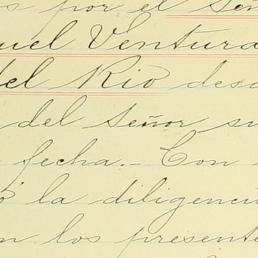 s por el Señ
uel Ventura
del Rio des
del Señor su
fecha.- Con
la diligenci
n los present